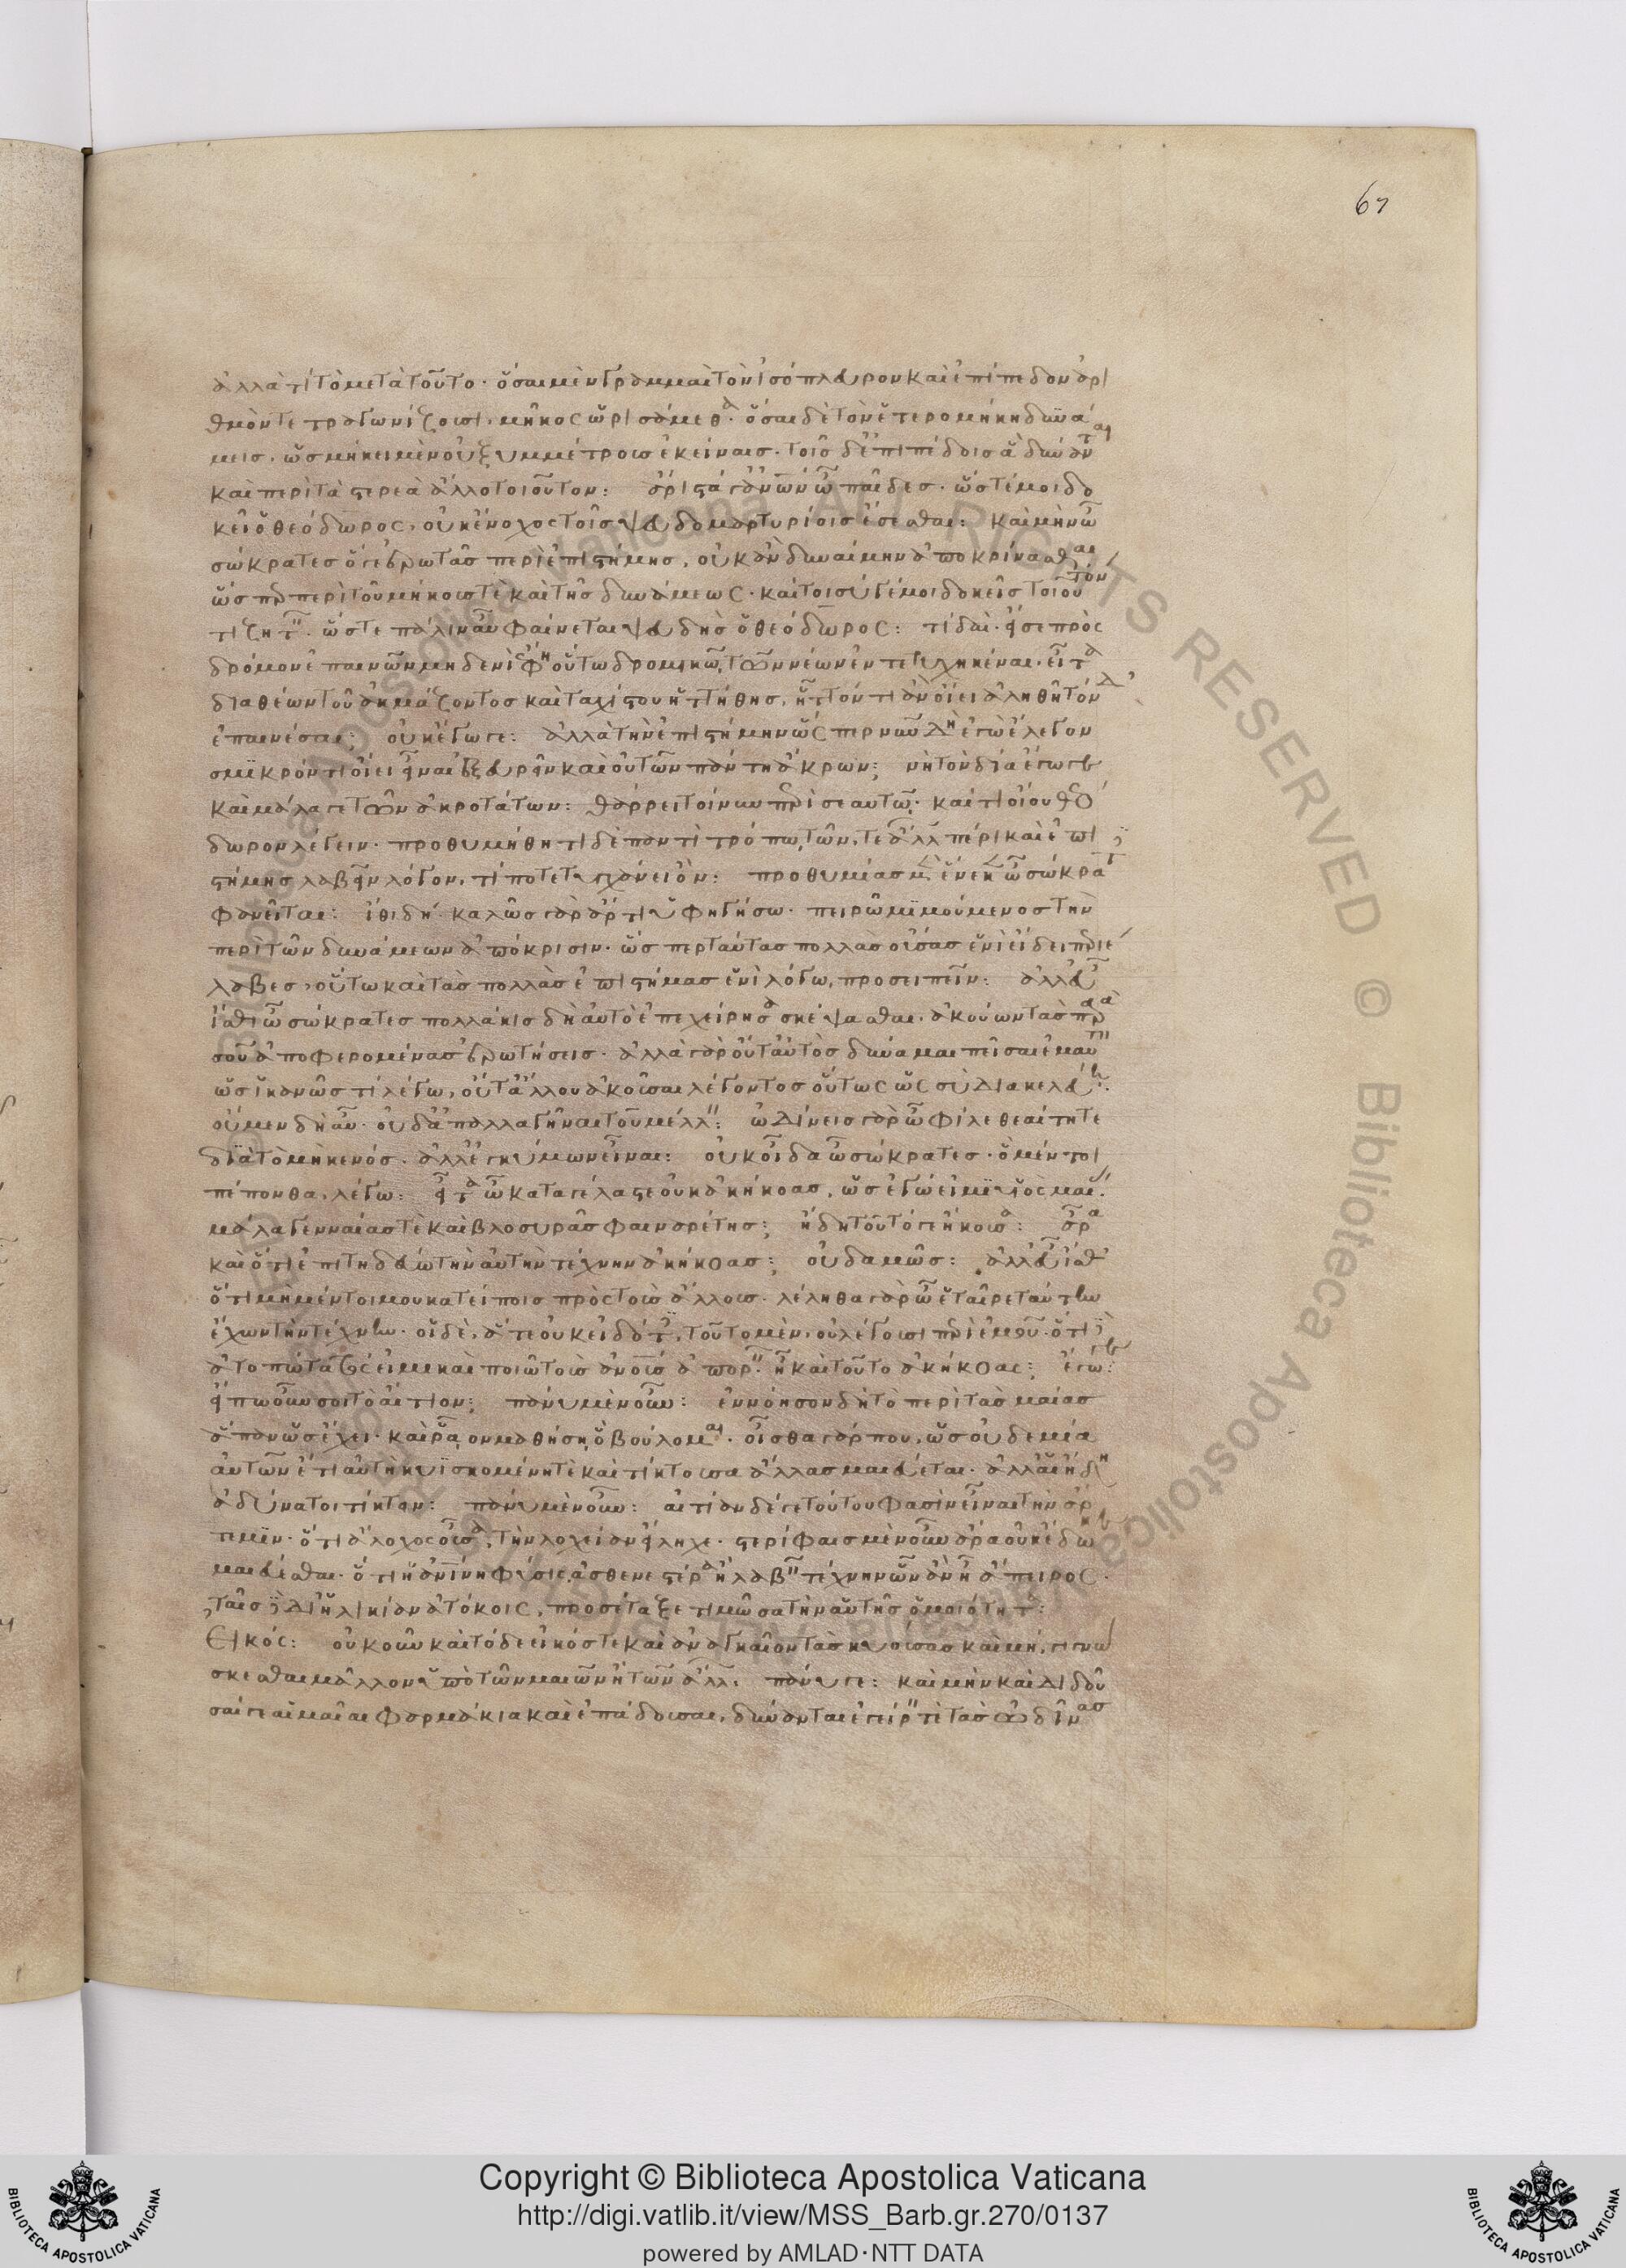 67
ἀλλὰ τί τὸ μετὰ τοῦτο· ὅσαι μὲν γραμμαὶ τὸν ἰσόπλευρον καὶ ἐπίπεδον ἀρι
θμὸν τετραγωνίζουσι, μῆκος ὡρισάμεθα· ὅσαι δὲ τὸν ἑτερομήκη δυνά
μεις, ὡς μήκει μὲν οὐ ξυμμέτρους ἐκείναις, τοῖς δ' ἐπιπέδοις ἃ δύνανται
καὶ περὶ τὰ στερεὰ ἄλλο τοιοῦτον: ἄριστά γ' ἀνων ὦ παῖδες· ὥστ' ἐμοι δο
κεῖ ὁ θεόδωρος, οὐκ ἔνοχος τοῖς ψευδομαρτυρίοις ἔσεσθαι: καὶ μὴν ὦ
σώκρατες ὅ γε ἐρωτᾶς περὶ ἐπιστήμης, οὐκ ἂν δυναίμην ἀποκρίνασθαι
ὥσπερ περὶ τοῦ μήκους τὲ καὶ τῆς δυνάμεως· καίτοι σύ γέ μοι δοκεῖς τοιοῦτόν
τι ζητεῖν· ὥστε πάλιν αὖ φαίνεται ψευδὴς ὁ θεόδωρος: τί δαί· εἴ σε πρὸς
δρόμον ἐπαινῶν μηδενὶ ἔφη οὕτω δρομικῶ τῶν νέων ἐντετυχηκέναι, εἶτα
διαθέων τοῦ ἀκμάζοντος καὶ ταχίστου ἡττήθης, ἧττόν τι ἂν οἴει ἀληθῆ τόνδ'
ἐπαινέσαι; οὐκ ἔγωγε: ἀλλὰ τὴν ἐπιστήμην ὥσπερ νῦν δὴ ἐγὼ ἔλεγον
σμικρόν τι οἴει εἶναι ἐξευρεῖν καὶ οὐ τῶν πάντη ἄκρων; νὴ τὸν δία ἔγωγε
καὶ μάλα γε τῶν ἀκροτάτων: θάρρει τοίνυν περὶ σεαυτῶ· καὶ τὶ οἴου θεό
δωρον λέγειν· προθυμήθητι δὲ παντὶ τρόπω, τῶν τε ἄλλων πέρι καὶ ἐπι
στήμης λαβεῖν λόγον, τί ποτε τυγχάνει ὄν: προθυμίας μὲν ἕνεκα ὦ σώκρατες
φανεῖται: ἴθι δή· καλῶς γὰρ ἄρτι ὑφηγήσω· πειρῶ μιμούμενος τὴν
περὶ τῶν δυνάμεων ἀπόκρισιν· ὥσπερ ταύτας πολλὰς οὔσας ἑνὶ εἴδει περιέ
λαβες, οὕτω καὶ τὰς πολλὰς ἐπιστήμας ἑνὶ λόγω, προσειπεῖν: ἀλλ' εὖ
ἴσθι ὦ σώκρατες πολλάκις δὴ αὐτὸ ἐπεχείρησα σκέψασθαι, ἀκούων τὰς παρὰ
σοῦ ἀποφερομένας ἐρωτήσεις· ἀλλὰ γὰρ οὔτ' αὐτὸς δύναμαι πεῖσαι ἐμαυτὸν
ὡς ἱκανῶς τὶ λέγω, οὔτ' ἄλλου ἀκοῦσαι λέγοντος οὕτως ὡς σὺ διακελεύη·
οὐ μὲν δὴ αὖ· οὐδ' ἀπαλλαγῆναι τοῦ μέλλειν: ὠδίνεις γὰρ ὦ φίλε θεαίτητε
διὰ τὸ μὴ κενός, ἀλλ' ἐγκύμων εἶναι: οὐκ οἶδα ὦ σώκρατες· ὃ μέντοι
πέπονθα, λέγω: εἶτα ὦ καταγέλαστε οὐκ ἀκήκοας, ὡς ἐγώ εἰμι υἱὸς μαίας
μάλα γενναίας τὲ καὶ βλοσυρᾶς φαιναρέτης; ἤδη τοῦτό γε ἤκουσα: ἆρα
καὶ ὅτι ἐπιτηδεύω τὴν αὐτὴν τέχνην ἀκήκοας; οὐδαμῶς: ἀλλ' εὖ ἴσθ'
ὅτι μὴ μέντοι μου κατείποις πρὸς τοὺς ἄλλους· λέληθα γὰρ ὦ ἑταῖρε ταύτην
ἔχων τὴν τέχνην· οἱ δὲ, ἅτε οὐκ εἰδότες, τοῦτο μὲν, οὐ λέγουσι περὶ ἐμοῦ· ὅτι δὲ
ἀτοπώτατός εἰμι καὶ ποιῶ τοὺς ἀνους ἀπορεῖν· ἦ καὶ τοῦτο ἀκήκοας; ἔγωγε:
εἴπω οὖν σοι τὸ αἴτιον; πάνυ μὲν οὖν: ἐννόησον δὴ τὸ περὶ τὰς μαίας
ἅπαν ὡς ἔχει· καὶ ῥᾶον μαθήση, ὃ βούλομαι· οἶσθα γάρ που, ὡς οὐδεμία
αὐτῶν ἔτι αὐτὴ κυϊσκομένη τὲ καὶ τίκτουσα ἄλλας μαιεύεται· ἀλλ' αἱ ἤδη
ἀδύνατοι τίκτειν: πάνυ μὲν οὖν: αἰτίαν δέ γε τούτου φασὶν εἶναι τὴν ἄρ
τεμιν· ὅτι ἄλοχος οὖσα, τὴν λοχείαν εἴληχε· στερίφαις μὲν οὖν ἄρα οὐκ ἔδωκε
μαιεύεσθαι· ὅτι ἡ ἀνίνη φύσις, ἀσθενεστέρα ἢ λαβεῖν τέχνην ὧν ἂν ἦ ἄπειρος·
ταῖς δὲ δι' ἡλικίαν ἀτόκοις, προσέταξε τιμῶσα τὴν αὑτῆς ὁμοιότητα:
Εἰκός: οὐκοῦν καὶ τόδε εἰκός τε καὶ ἀναγκαῖον τὰς κυούσας καὶ μή, γιγνώ
σκεσθαι μᾶλλον ὑπὸ τῶν μαιῶν ἢ τῶν ἄλλων: πάνυ γε: καὶ μὴν καὶ διδοῦ
σαί γε αἱ μαῖαι φαρμάκια καὶ ἐπάδουσαι, δύνανται ἐγείρειν τὲ τὰς ὠδῖνας
Copyright © Biblioteca Apostolica Vaticana
http://digi.vatlib.it/view/MSS_Barb.gr.270/0137
powered by AMLAD·NTT DATA